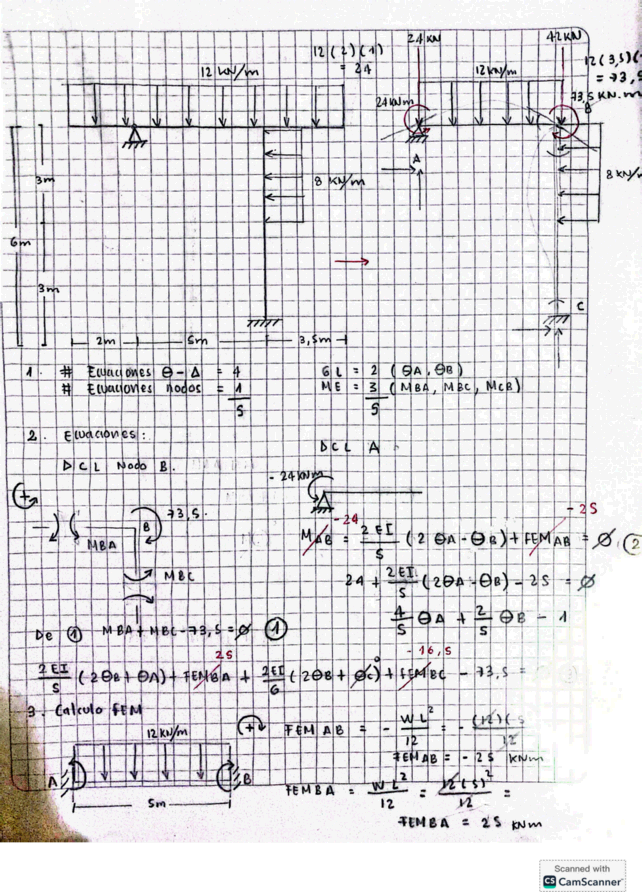 12(2)(1)
= 24
12 kN/m
24 kN
42 kN
12 kN/m
12(3,5)(
= 73,5
73,5 kN.m
24 kNm
B
A
8 kN/m
8 kN/
3m
6m
3m
C
2m 5m 3,5m
1. # Ecuaciones θ-Δ = 4
# Ecuaciones nodos = 1
5
GL = 2 (θA, θB)
ME = 3 (MBA, MBC, MCB)
5
2. Ecuaciones:
DCL Nodo B.
DCL A
- 24 kNm
73,5.
B
MBA
MBC
-24 -25
MAB = 2EI/5 (2θA - θB) + FEMAB = Ø (2
24 + 2EI/5 (2θA - θB) - 25 = Ø
4/5 θA + 2/5 θB - 1
De ① MBA + MBC - 73,5 = Ø ①
25 0 - 16,5
2EI/5 (2θB + θA) + FEMBA + 2EI/6 (2θB + θC) + FEMBC - 73,5 =
3. Calculo FEM
12 kN/m
A B
5m
FEMAB = - WL²/12 = - (12)(5/12
FEMAB = - 25 kNm
FEMBA = WL²/12 = 12(5)²/12 =
FEMBA = 25 kNm
Scanned with
CS CamScanner